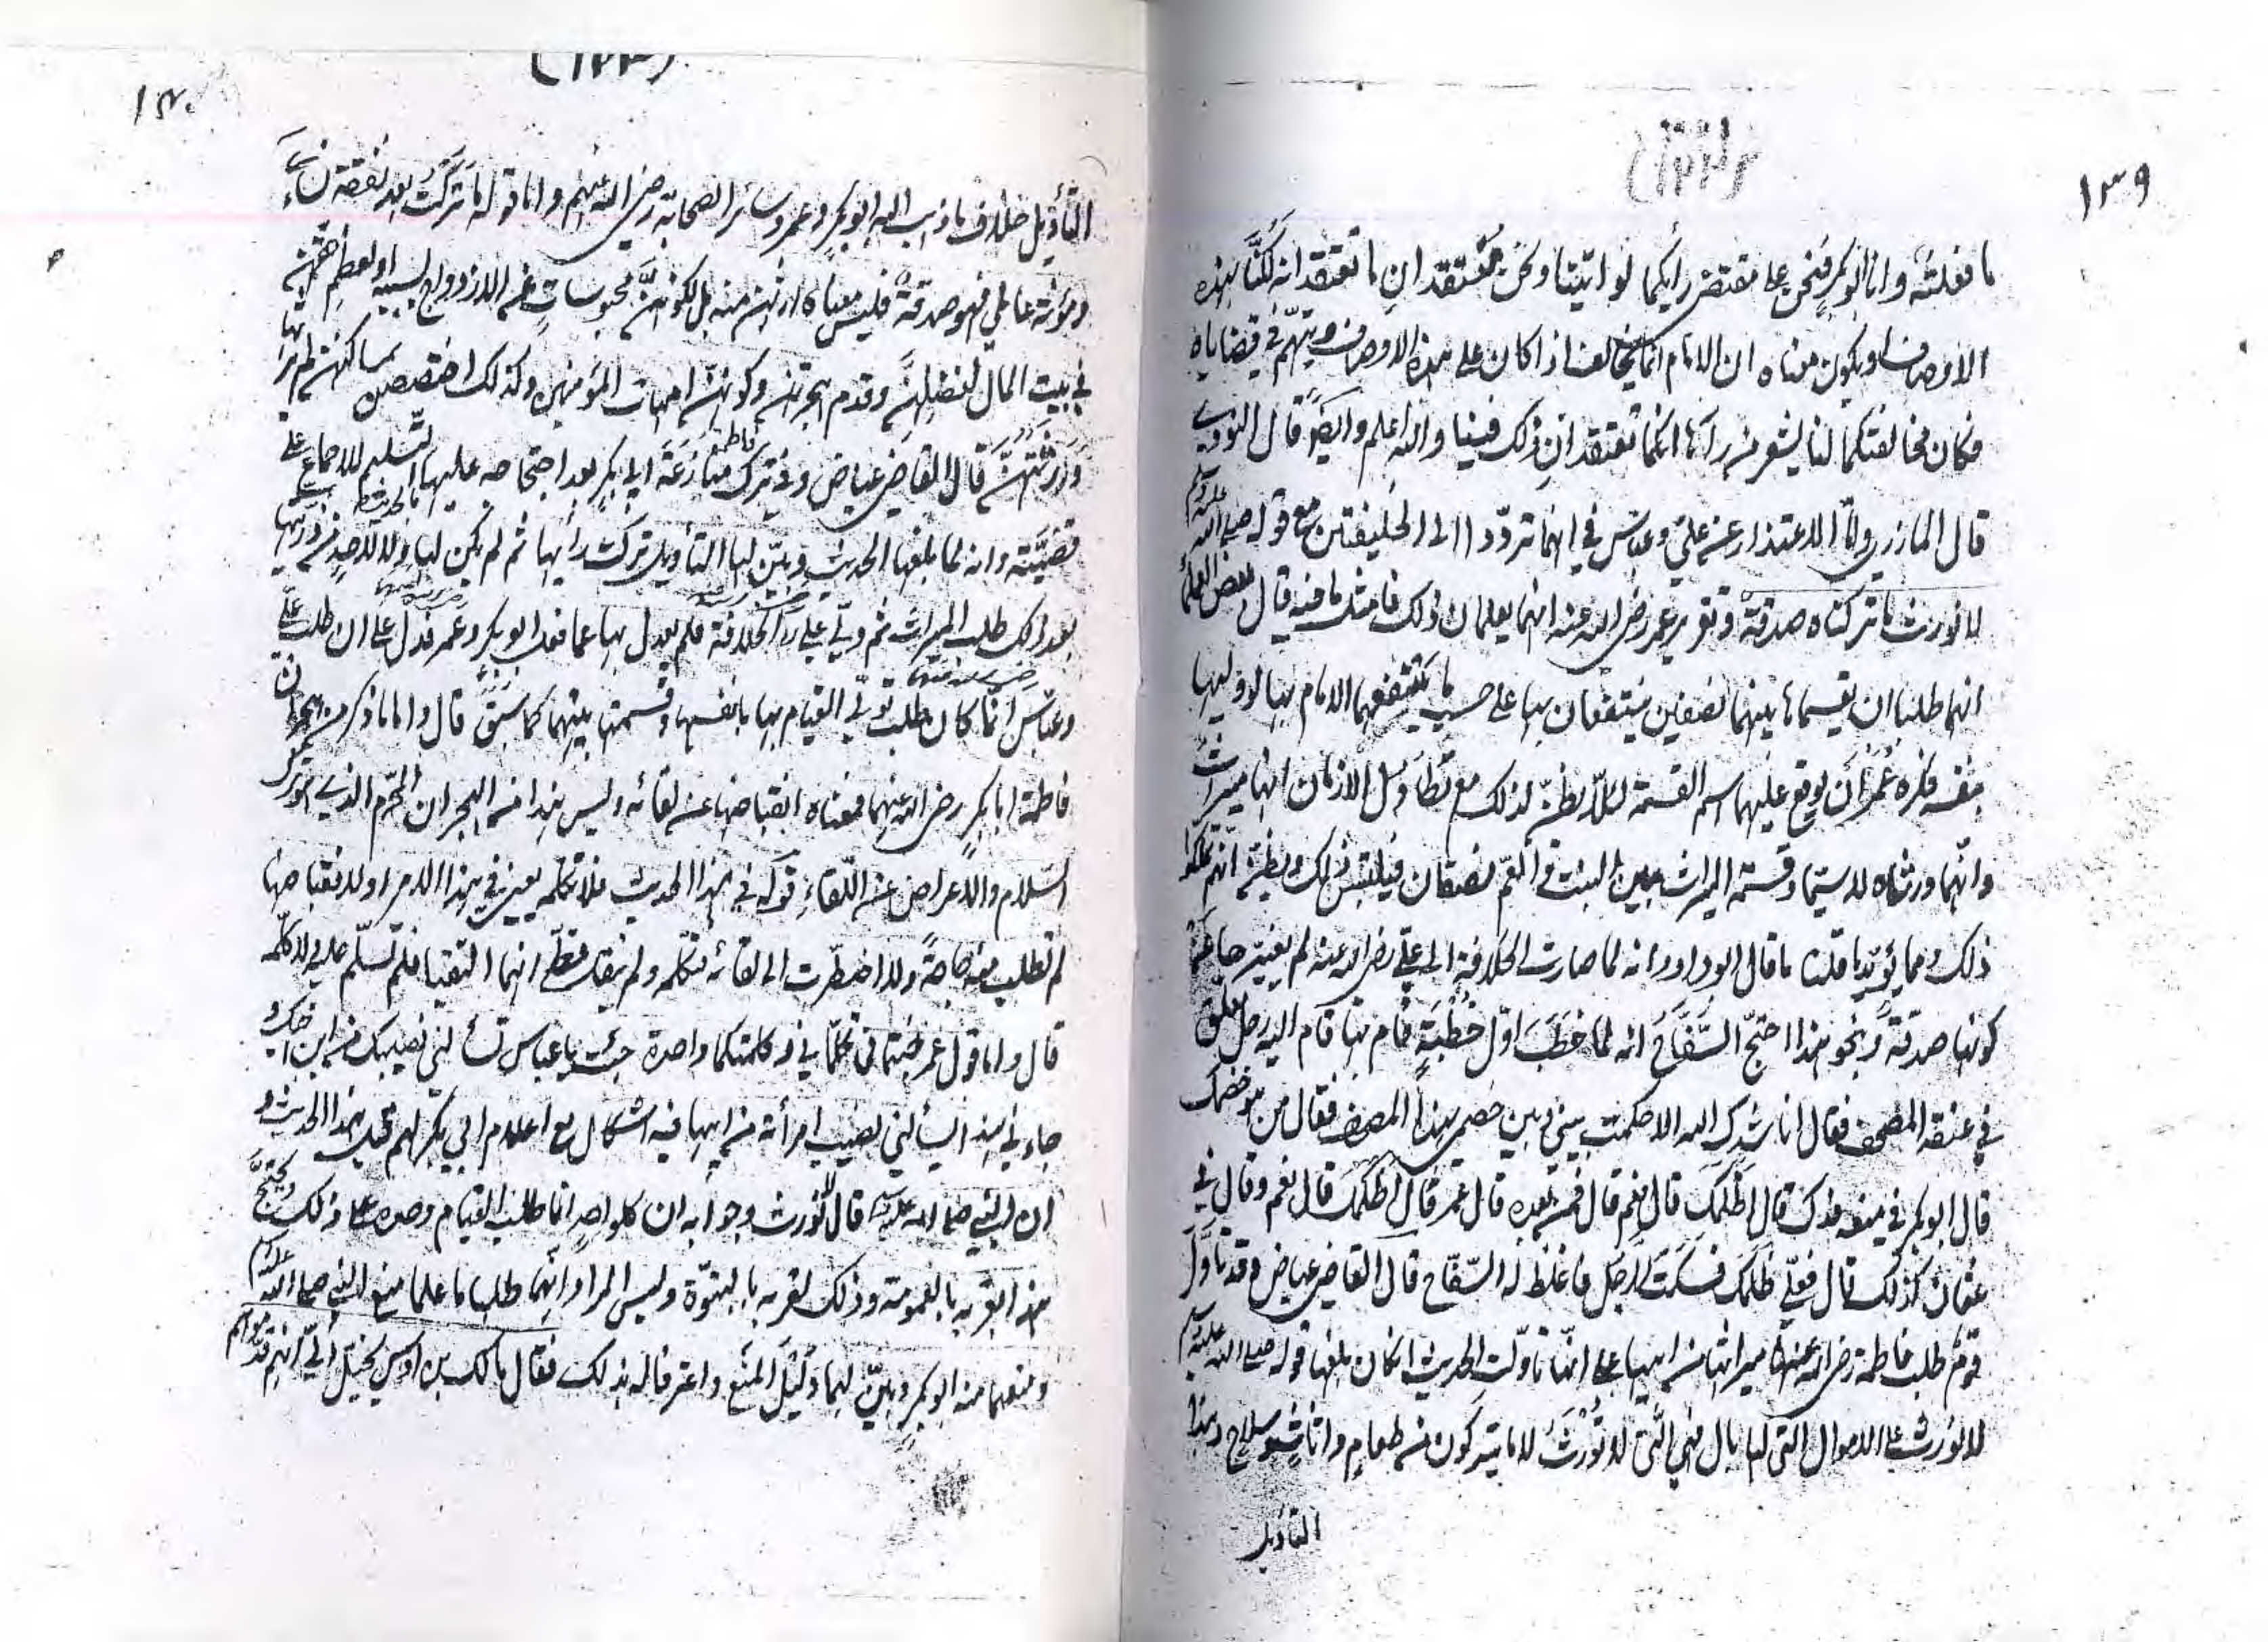 ١٣٩
(١٢٢)
ما فعلته وانا ابو بكر فنحن على مقتضى رأيكما لو اتيتنا ونحن معتقدان ما تعتقدانه لكنا بهذه
الاوصاف او يكون معناه ان الامام انما يخالف اذا كان على هذه الاوصاف ويتهم في قضاياه
فكان مخالفتكما لنا يشعر من رآها انكما تعتقدان ذلك فينا والله اعلم وايضًا قال النووي
قال المازري واما الاعتذار عن علي وعباس في انهما ترددا الى الخليفتين مع قوله صلى الله عليه وسلم
لا نورث ما تركناه صدقة وتقرير عمر رضي الله عنه انهما يعلمان ذلك فامثل ما فيه قال بعض العلما
انهما طلبا ان يقسماها بينهما نصفين ينتفعان بها على حسب ما ينتفعهما الامام بها لو وليها
بنفسه فكره عمر ان يوقع عليهما اسم القسمة لئلا يظن لذلك مع تطاول الازمان انها ميراث
وانهما ورثاه لا سيما وقسمة الميراث بين البنت والعم نصفان فيلتبس ذلك ويظن انهم تملكوا
ذلك ومما يؤيد ما قلنا ما قال ابو داود انه لما صارت الخلافة الى علي رضي الله عنه لم يغيرها عن
كونها صدقة وبنحو هذا احتج السفاح انه لما خطب اول خطبة قام بها قام اليه رجل معلق
في عنقه المصحف فقال اناشدك الله الا حكمت بيني وبين خصمي بهذا المصحف فقال من هو خصمك
قال ابو بكر في منعه فدك قال اظلمك قال نعم قال فمن بعده قال عمر قال اظلمك قال نعم وقال في
عثمان كذلك قال فعلي ظلمك فسكت الرجل فاغلظ له السفاح قال القاضي عياض وقد تأول
قوم طلب فاطمة رضي الله عنها ميراثها من ابيها على انها تأولت الحديث ان كان بلغها قوله صلى الله عليه وسلم
لا نورث على الاموال التي لها بال فهي التي لا تورث لا ما يتركون من طعام واثاث وسلاح وهذا
التأويل
(١٢٣)
١٤٠
التأويل خلاف ما ذهب اليه ابو بكر وعمر وسائر الصحابة رضي الله عنهم واما قوله ما تركت بعد نفقة نسائي
ومؤنة عاملي فهو صدقة فليس معناه ارثهن منه بل لكونهن محبوسات عن الازواج بسببه او لعظم حقهن
في بيت المال لفضلهن وقدم هجرتهن وكونهن امهات المؤمنين وكذلك اختصصن بمساكنهن لم يرثها
ورثتهن قال القاضي عياض وفي ترك فاطمة منازعة ابي بكر بعد احتجاجه عليها بالحديث التسليم للاجماع على
قضيته وانه لما بلغها الحديث وبين لها التأويل تركت رأيها ثم لم يكن لها ولا لاحد من ذريتها
بعد ذلك طلب الميراث ثم ولي علي الخلافة فلم يعدل بها عما فعله ابو بكر وعمر فدل على ان طلب علي
وعباس انما كان طلب تولي القيام بها بانفسهما وقسمتها بينهما كما سبق قال واما ما ذكر من هجران
فاطمة ابا بكر رضي الله عنهما فمعناه انقباضها عن لقائه وليس هذا من الهجران المحرم الذي هو ترك
السلام والاعراض عن اللقاء قوله في هذا الحديث فلم تكلمه يعني في هذا الامر او لانقباضها
لم تطلب منه حاجة ولا اضطرت الى لقائه فتكلمه ولم ينقل قط انهما التقيا فلم تسلم عليه ولا كلمه
قال واما قول عمر جئتماني تكلماني وكلمتكما واحدة جئت يا عباس تسألني نصيبك من ابن اخيك
جاءني هذا يسألني نصيب امرأته من ابيها فيه اشكال مع اعلام ابي بكر لهم قبل هذا الحديث و
ان النبي صلى الله عليه وسلم قال لا نورث وجوابه ان كل واحد انما طلب القيام وحده على ذلك ويحتج
هذا بقربه بالعمومة وذلك لقربه بالبنوة وليس المراد انهما طلبا ما علما منع النبي صلى الله عليه وسلم
ومنعهما منه ابو بكر وبين لهما دليل المنع واعترفا له بذلك فقال مالك بن اوس يخيل الي انهم قدموهم